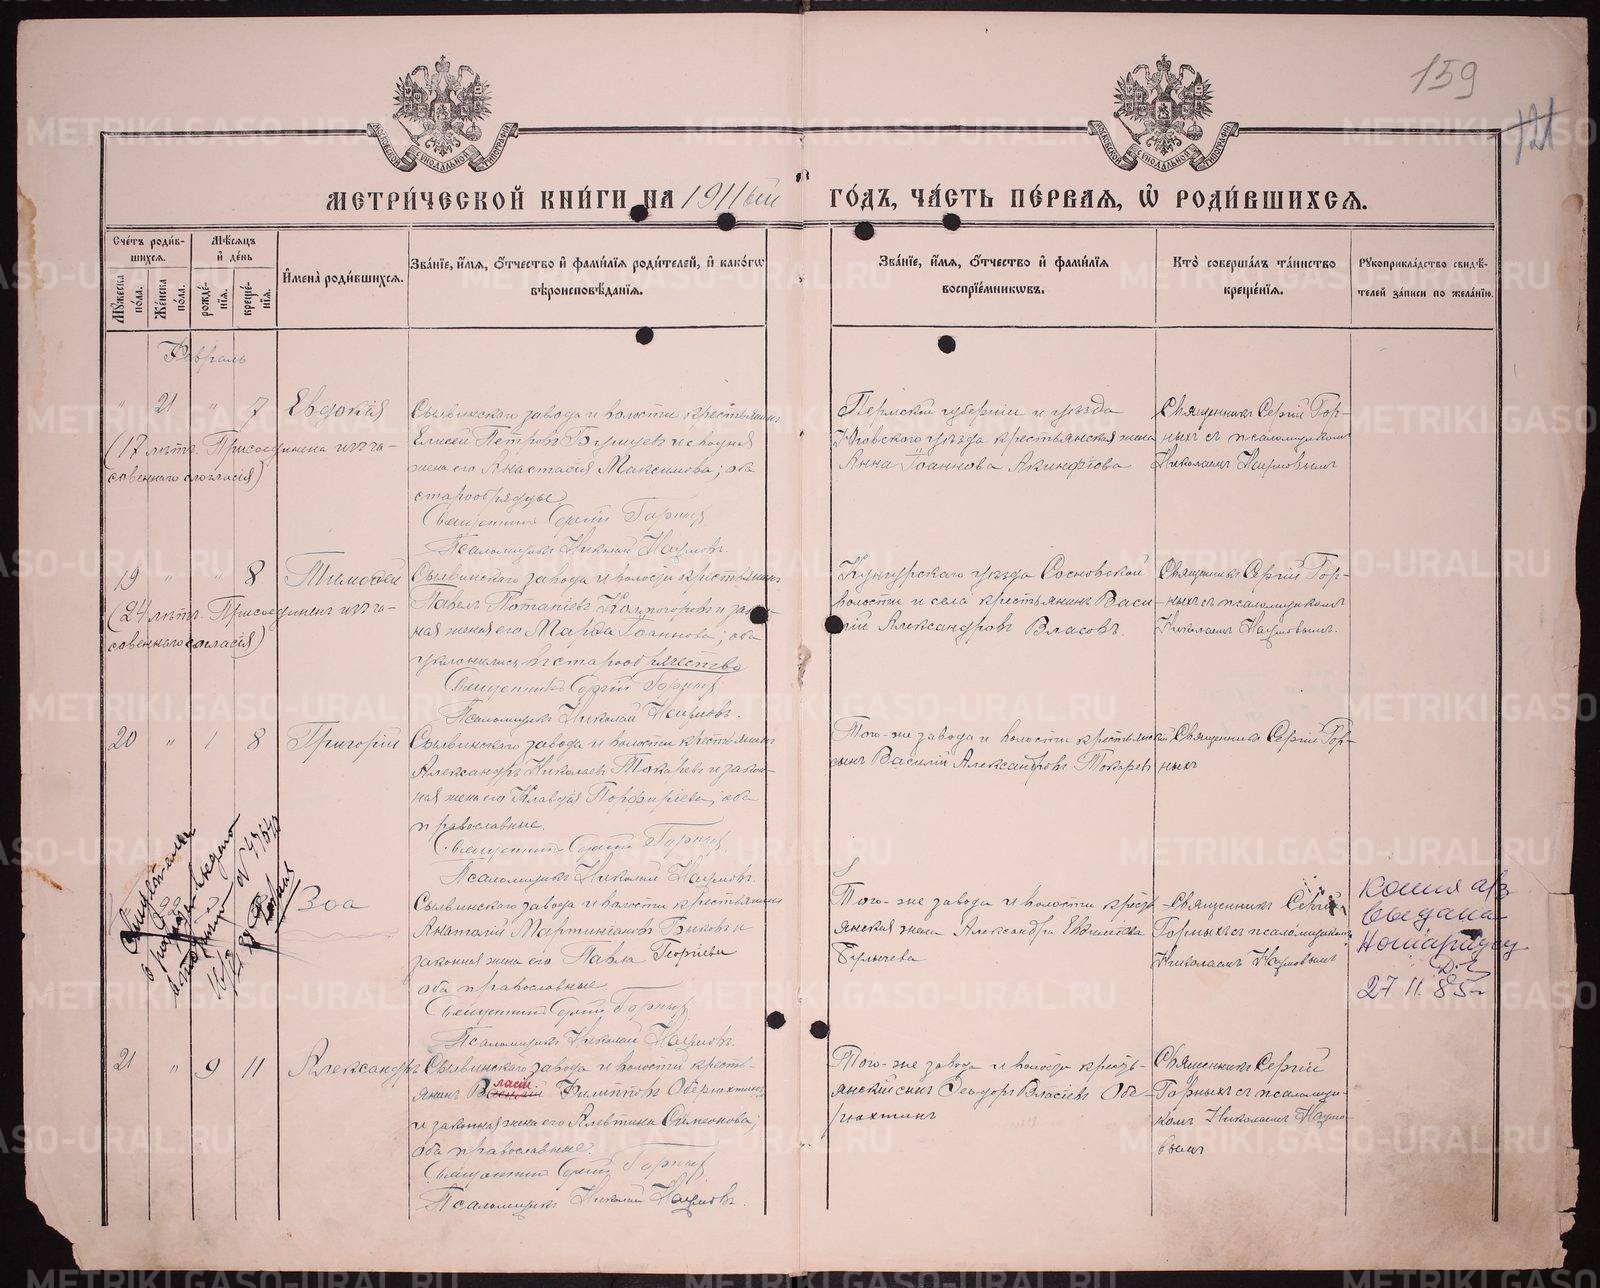 159
121
МЕТРИ́ЧЕСКОЙ КНИ́ГИ НА 1911ый ГО́ДЪ, ЧА́СТЬ ПЕ́РВАЯ, Ѽ РОДИ́ВШИХСЯ.
Сче́тъ роди́вшихся.
Мꙋ́жеска по́ла.
Же́нска по́ла.
Мѣ́сяцъ и҆ де́нь
рожде́нїя.
креще́нїя.
И҆мена̀ роди́вшихся.
Зва́нїе, и҆́мя, ѻ҆́тчество и҆ фами́лїя роди́телей, и҆ како́гѡ вѣроисповѣ́данїя.
Зва́нїе, и҆́мя, ѻ҆́тчество и҆ фами́лїя воспрїе́мникѡвъ.
Кто̀ соверша́лъ та́инство креще́нїя.
Рꙋкоприкла́дство свидѣ́телей за́писи по жела́нїю.
Февраль
" 21 " 7 Евдокія
(17 лѣтъ. Присоединена изъ часовеннаго согласія)
Сылвинскаго завода и волости крестьянинъ
Елисей Петровъ и сводная
жена его Анастасія Максимова; оба
старообрядцы
Священникъ Сергій Горныхъ
Псаломщикъ Николай Наумовъ.
Пермской губерніи и уѣзда
крестьянская жена
Анна Іоаннова Акинфіева
Священникъ Сергій Гор-
ныхъ съ псаломщикомъ
Николаемъ Наумовымъ
19 " " 8 Тимофей
(24 лѣтъ. Присоединенъ изъ часовеннаго согласія)
Сылвинскаго завода и волости крестьянинъ
Павелъ Потапіевъ и закон-
ная жена его Марфа Іоаннова; оба
уклонились въ старообрядчество
Священникъ Сергій Горныхъ
Псаломщикъ Николай Наумовъ.
Кунгурскаго уѣзда Сосновской
волости и села крестьянинъ Васи-
лій Александровъ Власовъ.
Священникъ Сергій Гор-
ныхъ съ псаломщикомъ
Николаемъ Наумовымъ.
20 " 1 8 Григорій
Сылвинскаго завода и волости крестьянинъ
Александръ Николаевъ Токаревъ и закон-
ная жена его Клавдія Порфиріева; оба
православные.
Священникъ Сергій Горныхъ
Псаломщикъ Николай Наумовъ.
Того-же завода и волости крестьянскій
сынъ Василій Александровъ Токаревъ
Священникъ Сергій Гор-
ныхъ
Зоа
Сылвинскаго завода и волости крестьянинъ
Анатолій Мартиніановъ Быковъ и
законная жена его Павла Георгіева
оба православные.
Священникъ Сергій Горныхъ
Псаломщикъ Николай Наумовъ.
Того-же завода и волости кресть-
янская жена Александра Евфимова
Булычева
Священникъ Сергій
Горныхъ съ псаломщикомъ
Николаемъ Наумовымъ
копия а/з
выдана
27 11. 85 г
21 " 9 11 Александръ
Сылвинскаго завода и волости кресть-
янинъ Власій Филипповъ Оберюхтинъ
и законная жена его Алевтина Симеонова;
оба православные.
Священникъ Сергій Горныхъ
Псаломщикъ Николай Наумовъ.
Того-же завода и волости кресть-
янскій сынъ Феодоръ Власіевъ Обе-
рюхтинъ
Священникъ Сергій
Горныхъ съ псаломщи-
комъ Николаемъ Наумо-
вымъ
METRIKI.GASO-URAL.RU